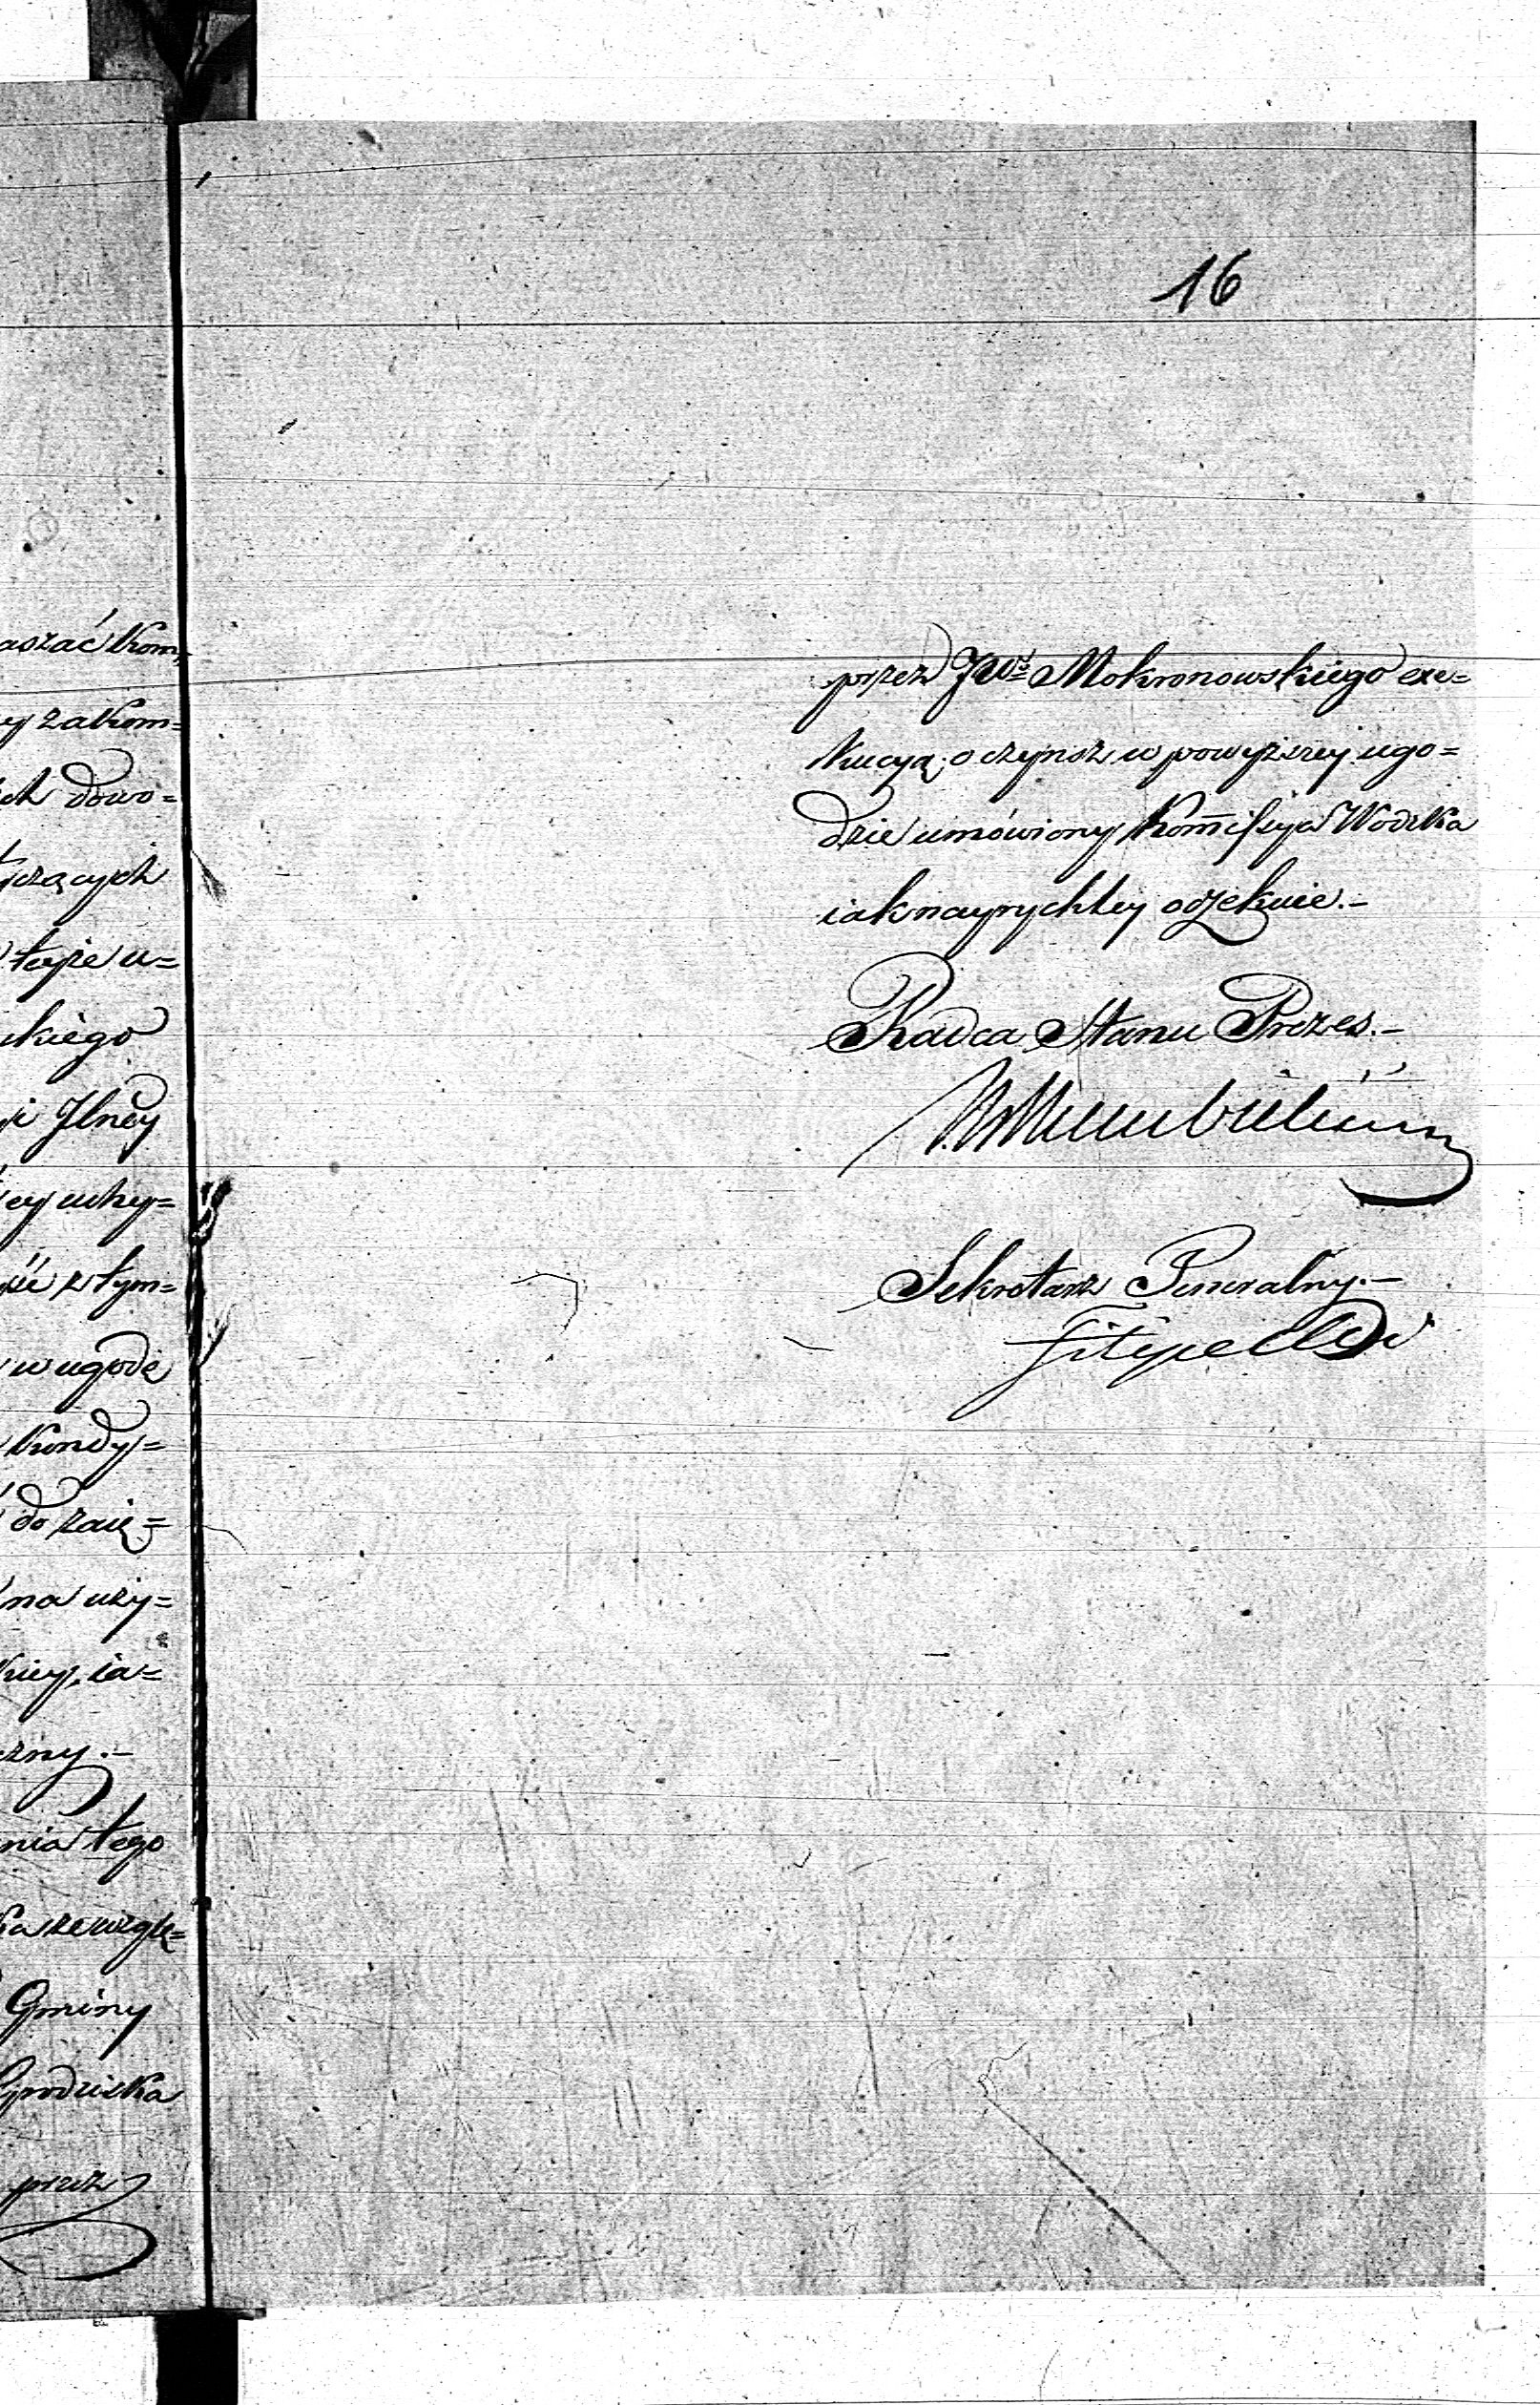 aszać kom,
y zakom=
ch dowo=
czących
tąże u=
skiego
i Jlney
cy uchy=
ść z tym=
w ugodę
kondy=
do zaię=
na uży=
kiey, ia=
czny.–
nia tego
ka ze wzglę=
Gminy
Grodziska
przez
16
przez JWo Mokronowskiego exe=
kucyą; o czynsz w powyższey ugo=
dzie umówiony Kommissyia Wodzka
iak nayrychley oczekuie.–
Radca Stanu Prezes.–
Sekretarz Generalny.–
Filipecki